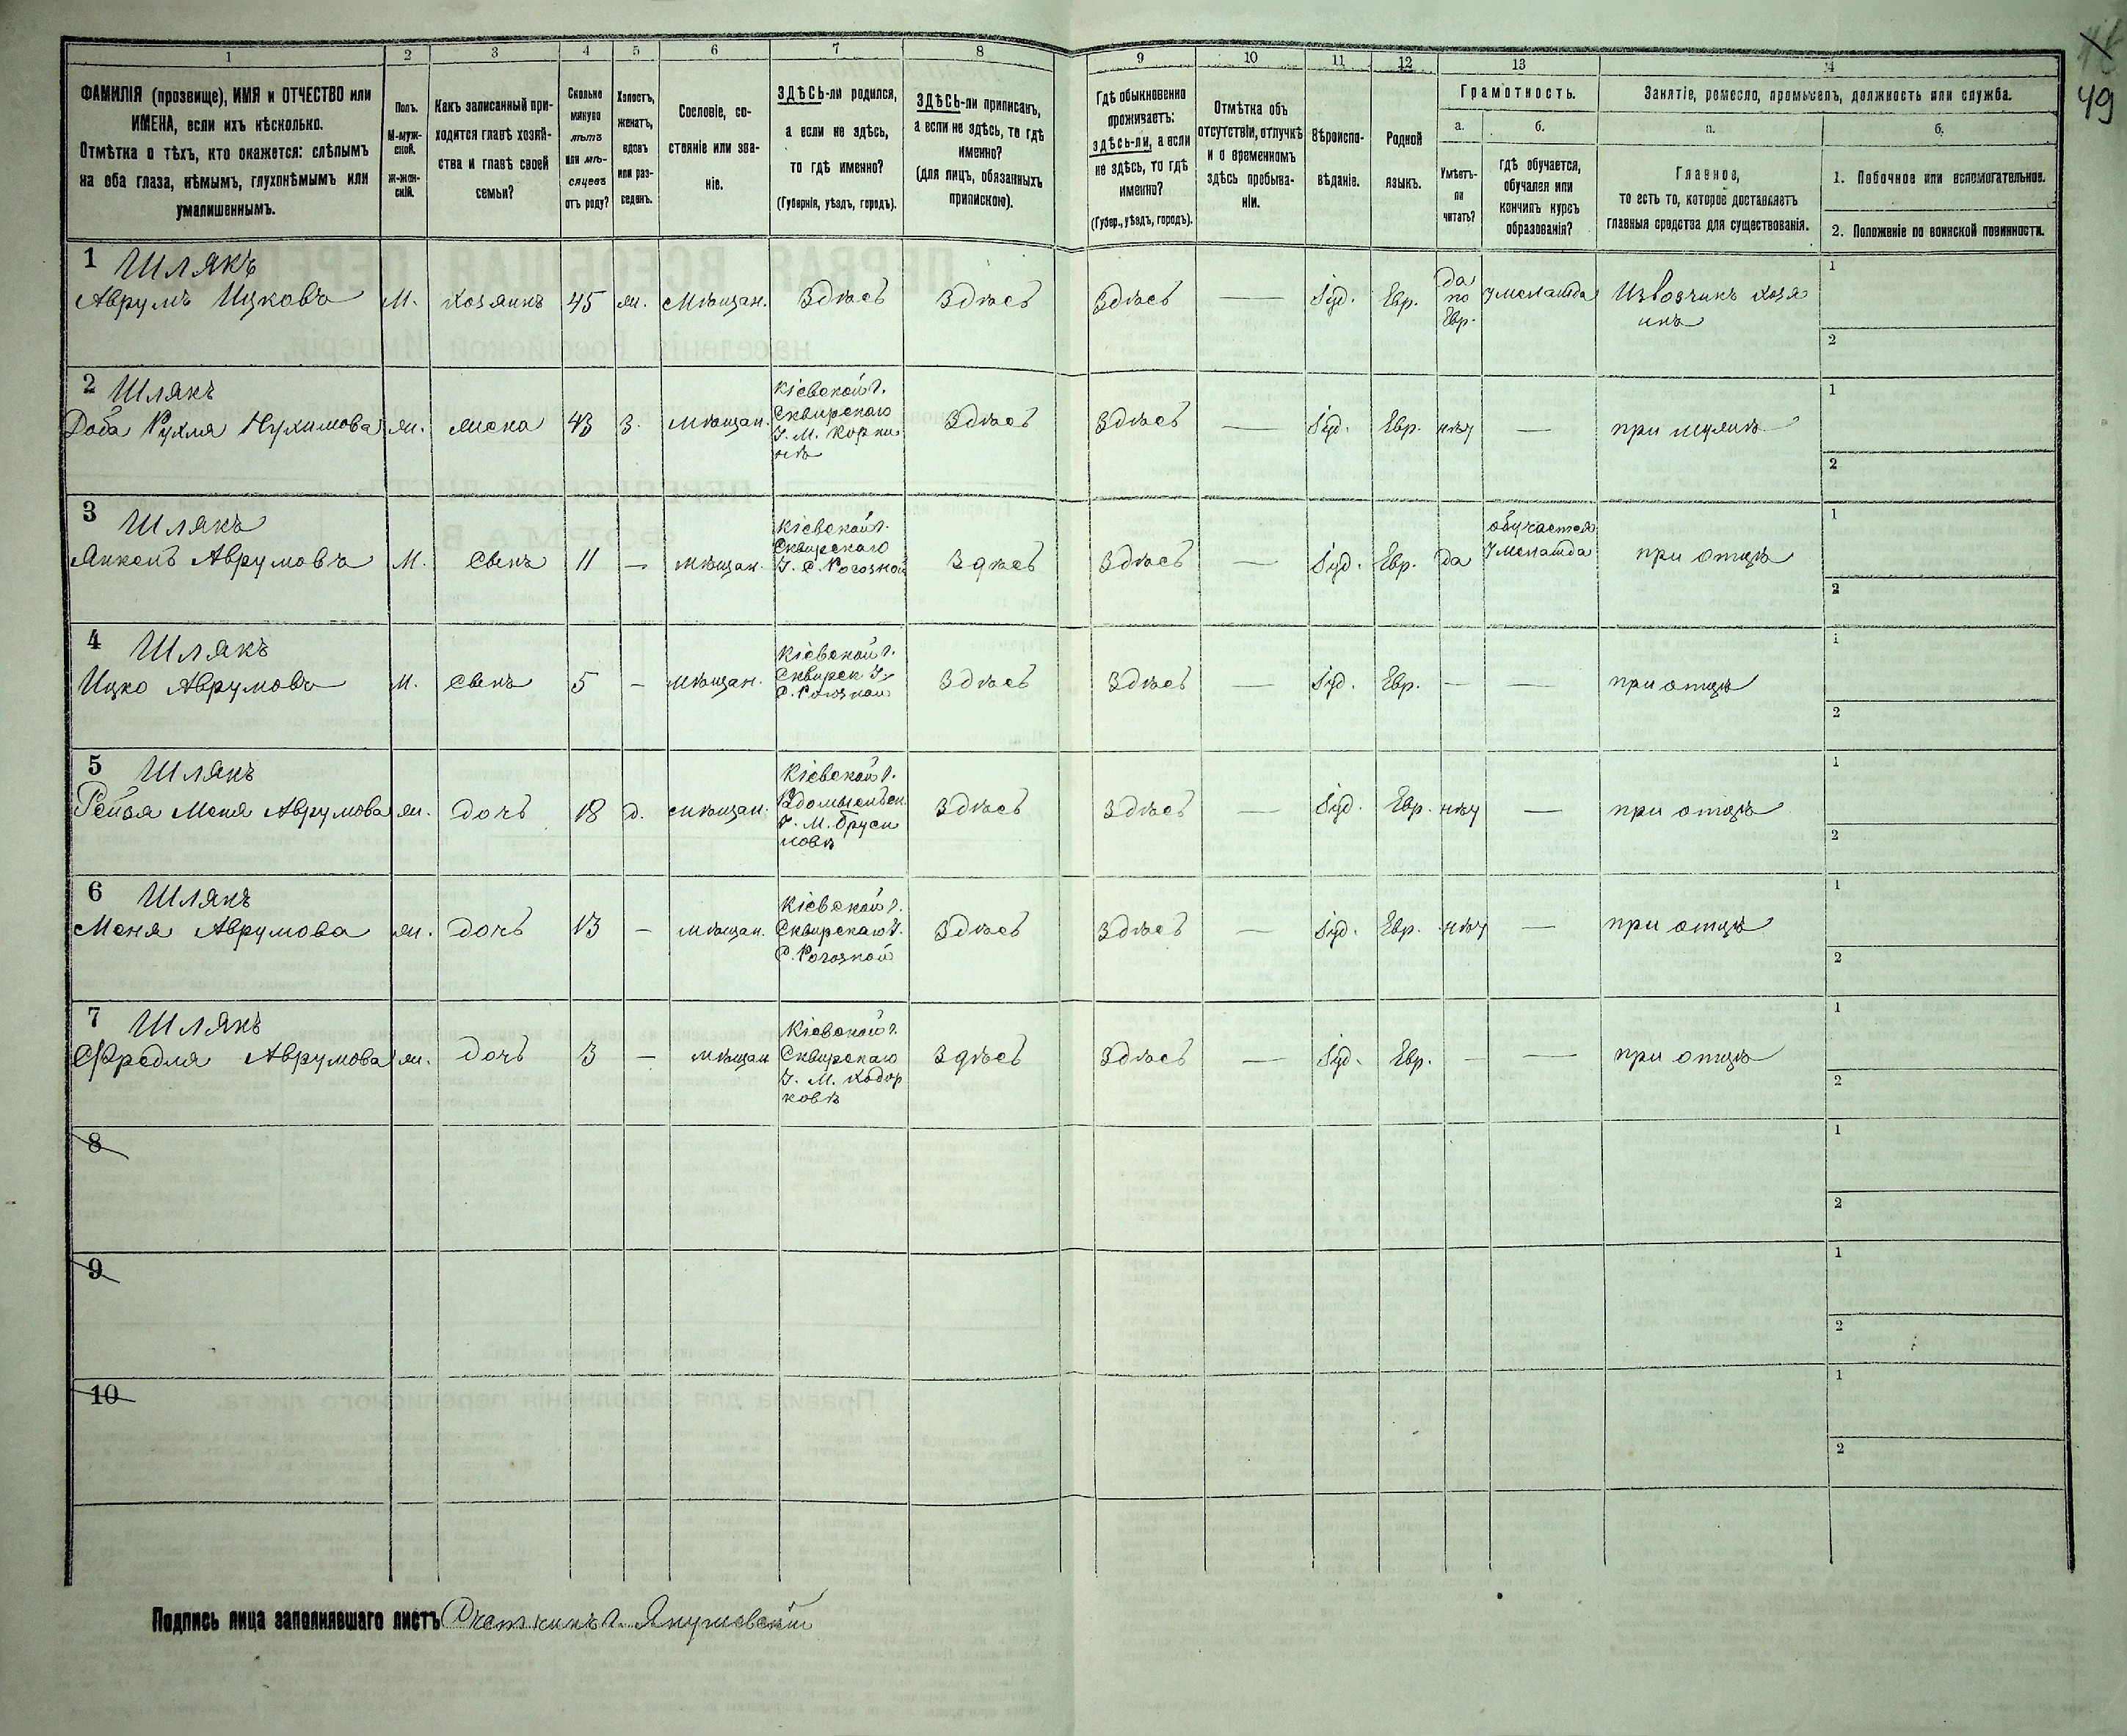 49
1 2 3 4 5 6 7 8 9 10 11 12 13 14
ФАМИЛІЯ (прозвище), ИМЯ и ОТЧЕСТВО или
ИМЕНА, если ихъ нѣсколько.
Отмѣтка о тѣхъ, кто окажется: слѣпымъ
на оба глаза, нѣмымъ, глухонѣмымъ или
умалишеннымъ.
Полъ.
М-муж-
ской.
Ж-жен-
скій.
Какъ записанный при-
ходится главѣ хозяй-
ства и главѣ своей
семьи?
Сколько
минуло
лѣтъ
или мѣ-
сяцевъ
отъ роду?
Холостъ,
женатъ,
вдовъ
или раз-
веденъ.
Сословіе, со-
стояніе или зва-
ніе.
ЗДѢСЬ-ли родился,
а если не здѣсь,
то гдѣ именно?
(Губернія, уѣздъ, городъ).
ЗДѢСЬ-ли приписанъ,
а если не здѣсь, то гдѣ
именно?
(для лицъ, обязанныхъ
припискою).
Гдѣ обыкновенно
проживаетъ:
здѣсь-ли, а если
не здѣсь, то гдѣ
именно?
(Губер., уѣздъ, городъ).
Отмѣтка объ
отсутствіи, отлучкѣ
и о временномъ
здѣсь пребыва-
ніи.
Вѣроиспо-
вѣданіе.
Родной
языкъ.
Грамотность.
а.
Умѣетъ-
ли
читать?
б.
гдѣ обучается,
обучался или
кончилъ курсъ
образованія?
Занятіе, ремесло, промыселъ, должность или служба.
а.
Главное,
то есть то, которое доставляетъ
главныя средства для существованія.
б.
1. Побочное или вспомогательное.
2. Положеніе по воинской повинности.
1 Шлякъ
Аврумъ Ицковъ М. хозяинъ 45 ж. Мѣщан. Здѣсь Здѣсь Здѣсь — Іуд. Евр. да по Евр. У меламда Извозчикъ хозя
инъ
1
2
2 Шлякъ
Доба Рухля Нухимова ж. жена 43 З. мѣщан. Кіевской г.
Сквирскаго
У. М. Корни
нѣ
Здѣсь Здѣсь — Іуд. Евр. нѣт — при мужѣ
1
2
3 Шлякъ
Янкель Аврумовъ М. Сынъ 11 — мѣщан. Кіевской г.
Сквирскаго
У. С. Рогозной
Здѣсь Здѣсь — Іуд. Евр. да обучается
У меламда
при отцѣ
1
2
4 Шлякъ
Ицко Аврумовъ М. Сынъ 5 — мѣщан. Кіевской г.
Сквирск У.
С. Рогозной
Здѣсь Здѣсь — Іуд. Евр. — — при отцѣ
1
2
5 Шлякъ
Рейзя Меня Аврумова ж. дочь 18 д. мѣщан. Кіевской г.
Радомысльск.
У. М. Бруси
ловѣ
Здѣсь Здѣсь — Іуд. Евр. нѣт — при отцѣ
1
2
6 Шлякъ
Меня Аврумова ж. дочь 13 — мѣщан. Кіевской г.
Сквирскаго У.
С. Рогозной
Здѣсь Здѣсь — Іуд. Евр. нѣт — при отцѣ
1
2
7 Шлякъ
Фредля Аврумова ж. дочь 3 — мѣщан Кіевской г.
Сквирскаго
У. М. Ходор
ковѣ
Здѣсь Здѣсь — Іуд. Евр. — — при отцѣ
1
2
8
1
2
9
1
2
10
1
2
Подпись лица заполнявшаго листъ Счетчикъ Г. Янушевскій